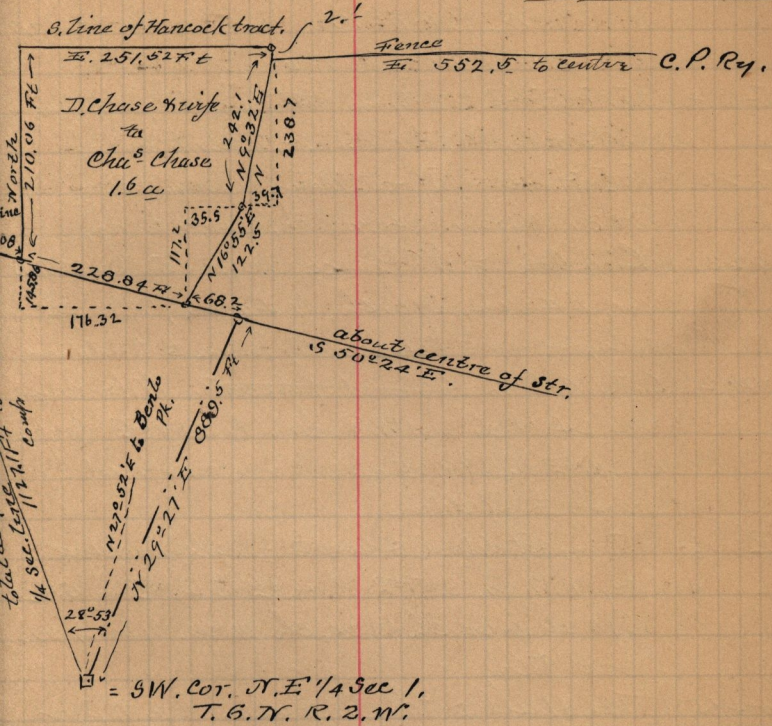 S. line of Hancock tract.
E. 251.52 Ft
Fence
E 552.5 to centre C.P. Ry.
D. Chase & wife
to
Chas Chase
1.6 a
North
210.06 Ft
242.1
N 9°-32' E
238.7
N
35.5
117.2
N 16°55' E
122.5
228.84 Ft
68.2
176.32
145.86
about centre of Str.
S 50°24' E.
N 27°52' E to Bents
Pk.
N 29°-27' E
Ft
1/4 Sec. line 1122.1 Ft
Comp
28°-53'
= SW. Cor. N.E 1/4 Sec 1,
T. 6. N. R. 2. W.